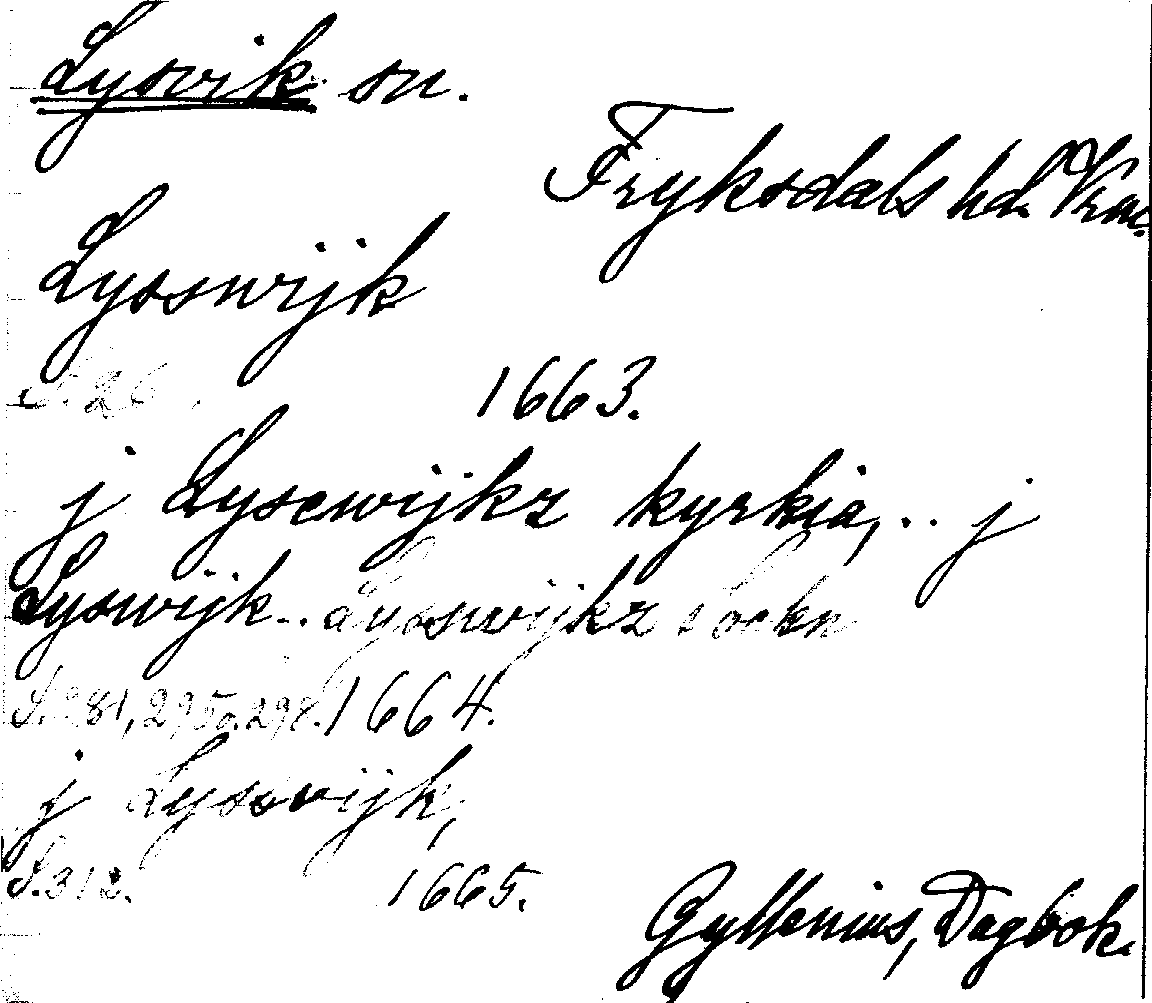 Lysvik sn.
Fryksdals hd. Vrml.
Lysswijk
S. 26. 1663.
j Lysewijkz kyrkia,.. j
Lyswijk... Lysswijkz Sockn
S. 281, 295o. 298. 1664.
j Lysswijk,
S. 312. 1665.
Gyllenius, Dagbok.